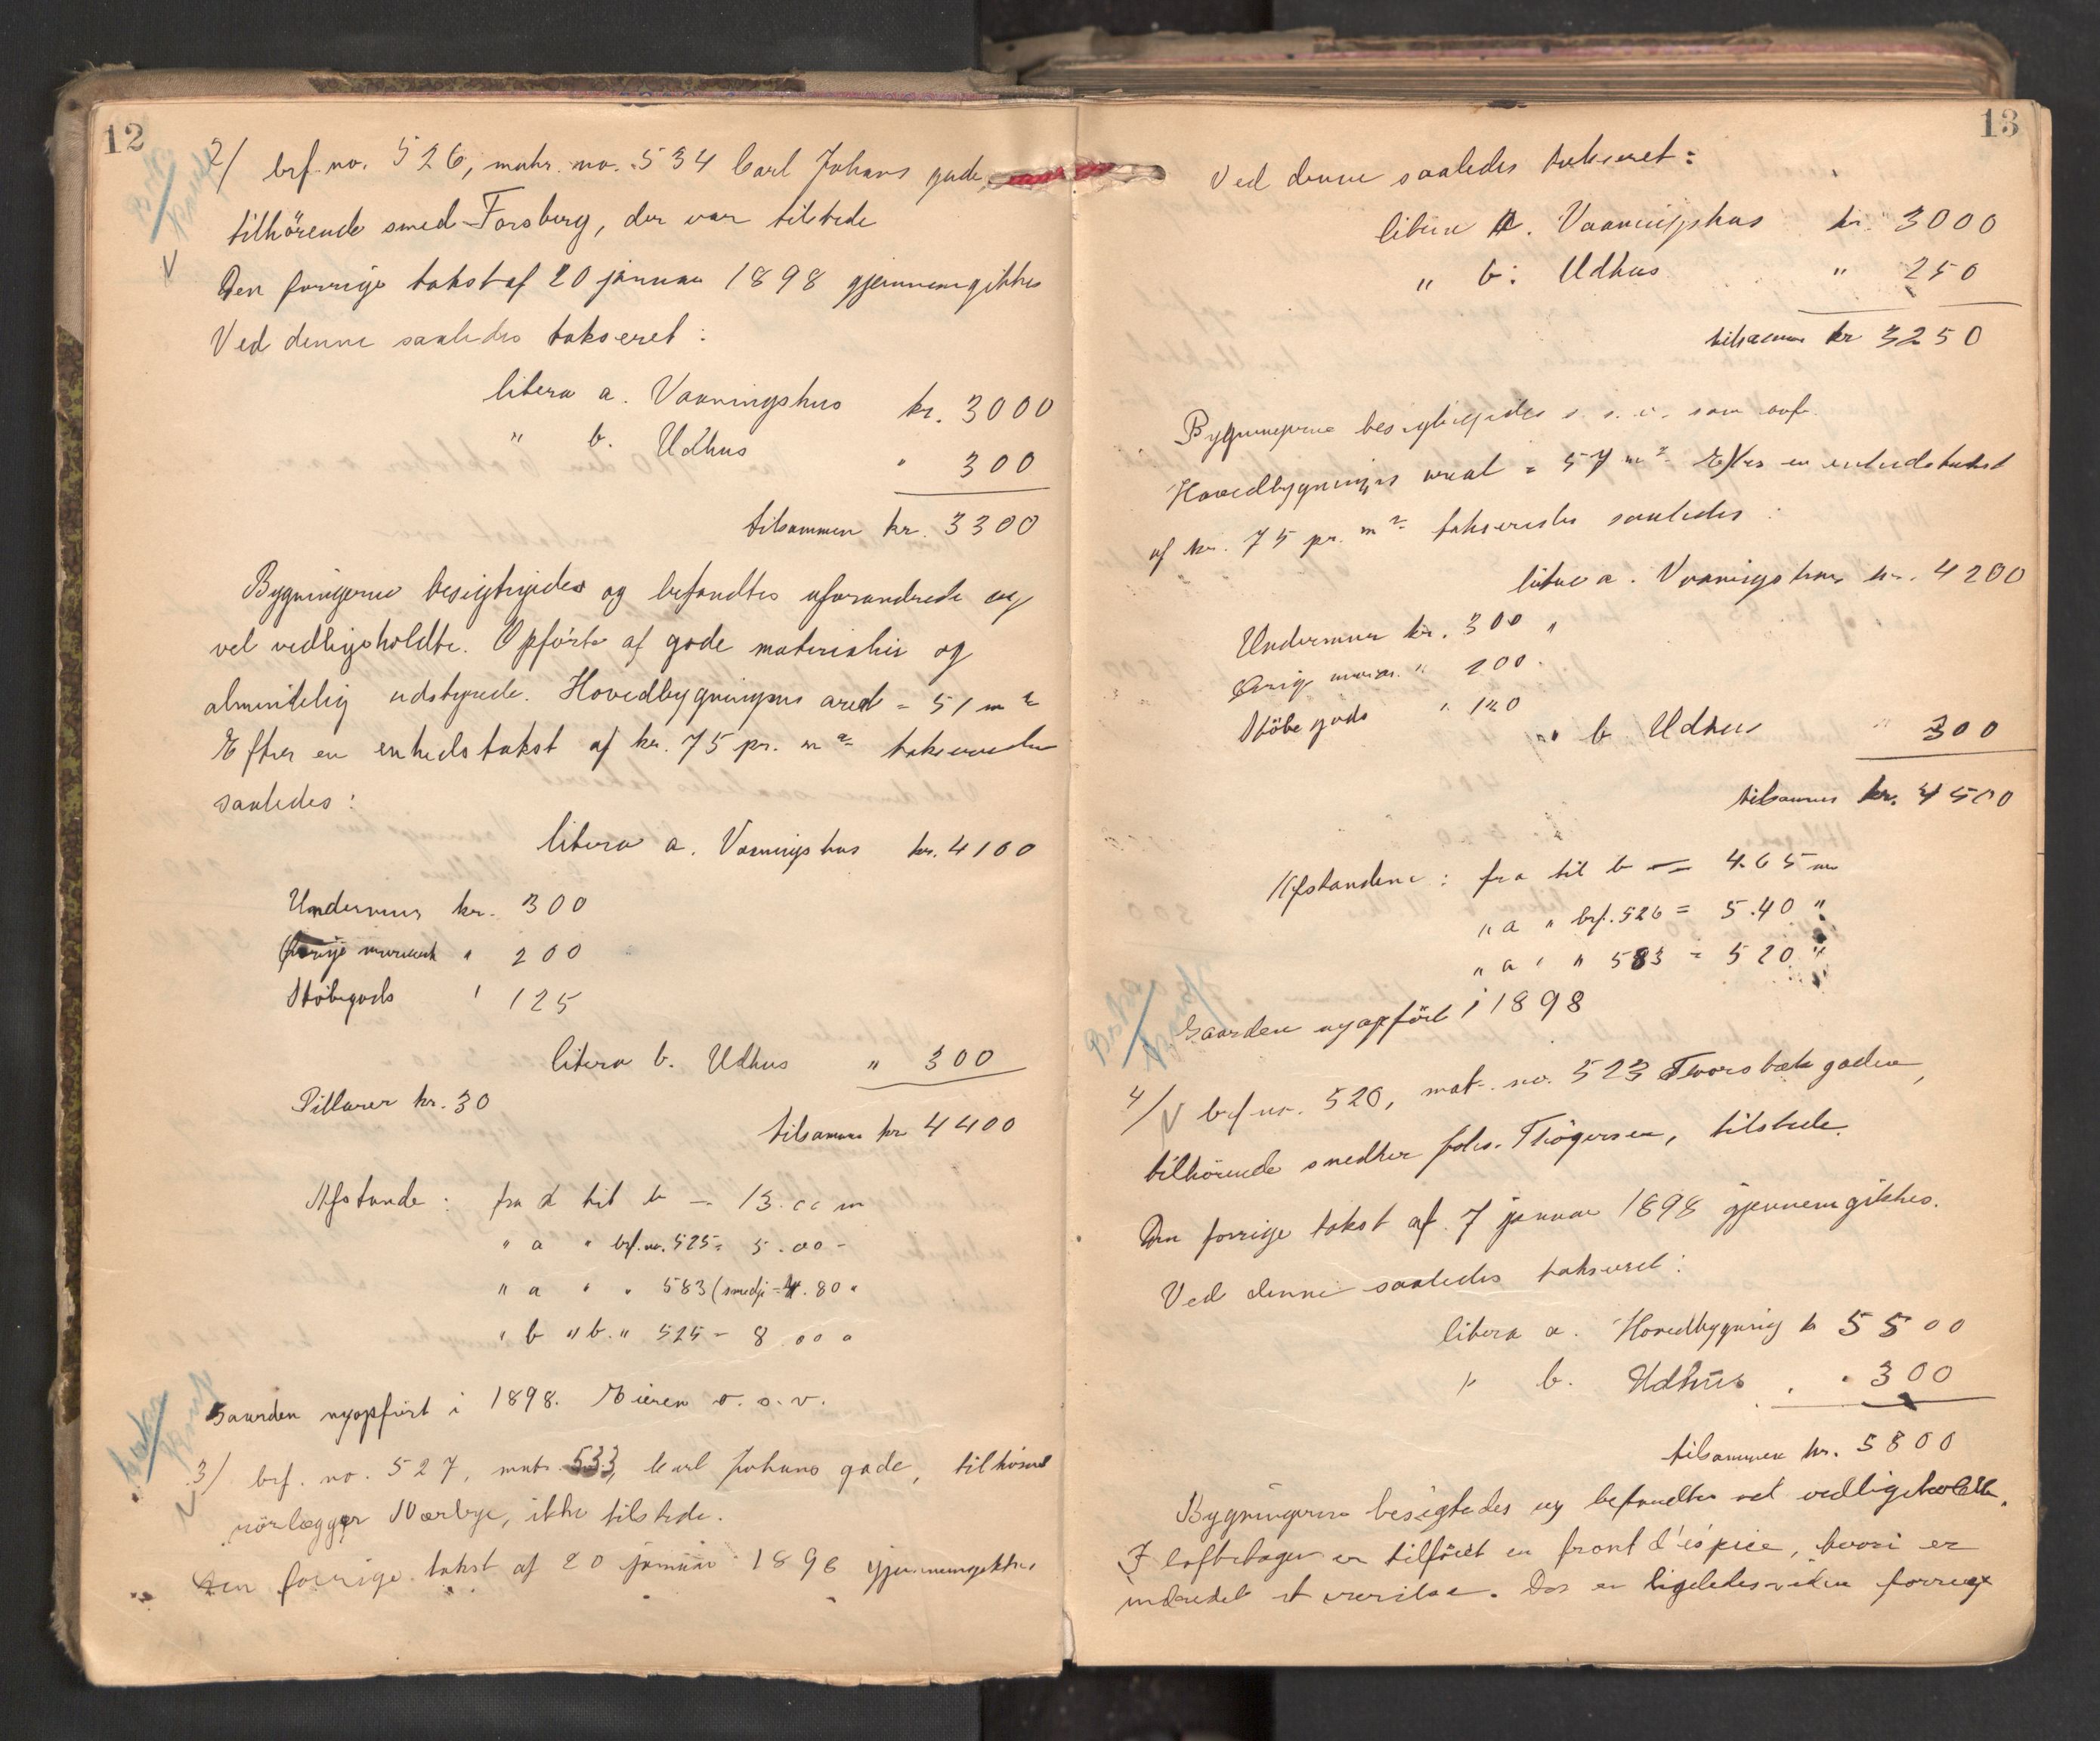 12
2/ brf. no. 526, matr. no. 534 Carl Johans gade,
tilhörende smed Forsberg, der var tilstede
Den forrige takst af 20 januar 1898 gjennemgikkes
Ved denne saaledes takseret:
litera a. Vaaningshus kr. 3000
" b. Udhus " 300
tilsammen kr. 3300
Bygningerne besigtigedes og befandtes uforandrede og
vel vedligeholdte. Opført af gode materialier og
almindelig udstyrede. Hovedbygningens areal = 51 m2
Efter en enhedstakst af kr. 75 pr. m2 takseredes
saaledes:
litera a. Vaaningshus kr. 4100
Undermur kr. 300
Øvrige murværk " 200
Støbegods " 125
litera b. Udhus " 300
Pillarer kr. 30
tilsammen kr 4400
Afstande: fra a til b = 13.00 m
" a " brf. no. 525 = 5.00 "
" a " " 583 (smedje = 4.80 "
" b " b. " 525 = 8.00 "
Gaarden nyopført i 1898. Eieren o. s. v.
3/ brf. no. 527, matr. 533, Carl Johans gade, tilhörende
rörlægger Nærbye, ikke tilstede.
Den forrige takst af 20 januar 1898 gjennemgikkes
13
Ved denne saaledes takseret:
litera a. Vaaningshus kr. 3000
" b. Udhus " 250
tilsammen kr 3250
Bygningerne besigtigedes o. s. v. som
Hovedbygningens areal = 57 m2 Efter en enhedstakst
af kr. 75 pr. m2 takseredes saaledes:
litra a. Vaaningshus kr. 4200
Undermur kr. 300 "
Øvrig murv. " 200
Støbegods " 120
" b. Udhus " 300
tilsammen kr. 4500
Afstandene: fra til b = 4.65 m
" a " brf. 526 = 5.40 "
" a " " 583 = 5 20 "
Gaarden nyopført i 1898
4/ brf no. 520, mat. no. 523 Tvorsbækgaden,
tilhörende smedker Johs. Thögersen, tilstede.
Den forrige takst af 7 januar 1898 gjennemgikkes.
Ved denne saaledes takseret:
litera a. Hovedbygning kr 5500
" b. Udhus " 300
tilsammen kr. 5800
Bygningerne besigtedes og befandtes vel vedligeholdte.
I loftetagen er tilføiet en front d'éspice, hvori er
indredet et værelse. Der er ligeledes